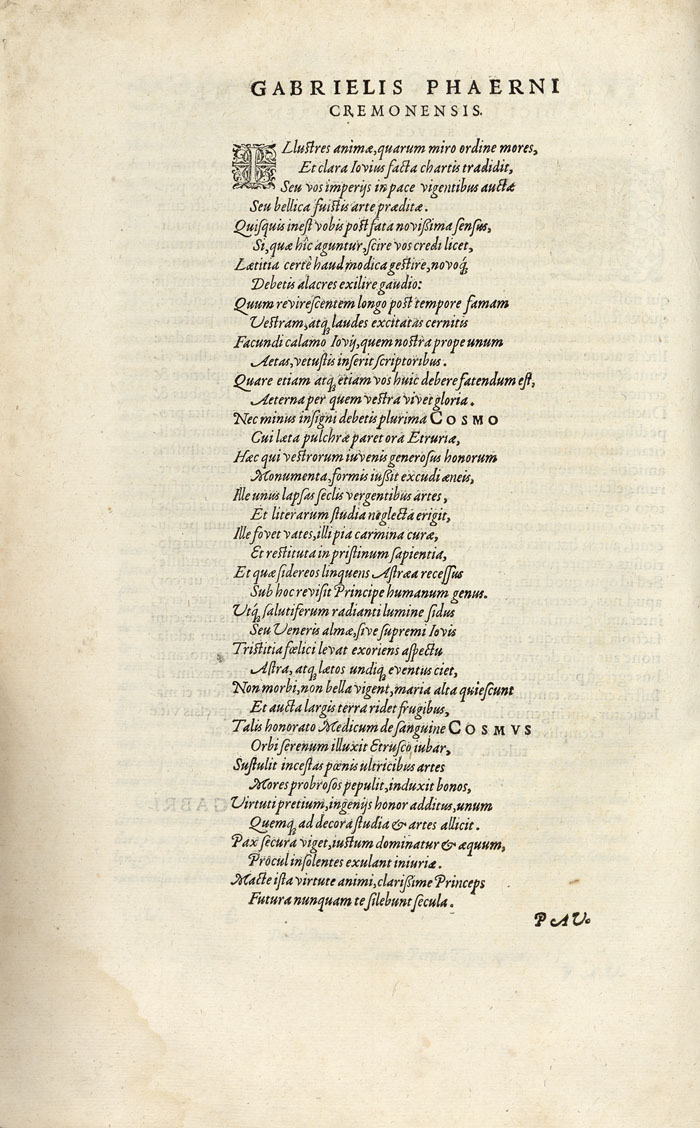 GABRIELIS PHAERNI
CREMONENSIS.
ILlustres animæ, quarum miro ordine mores,
Et clara Iovius facta chartis tradidit,
Seu vos imperijs in pace vigentibus auctæ
Seu bellica fuistis arte præditæ.
Quisquis inest vobis post fata novissima sensus,
Si, quæ hîc aguntur, scire vos credi licet,
Lætitia certè haud modica gestire, novoq́;
Debetis alacres exilire gaudio:
Quum revirescentem longo post tempore famam
Vestram, atq; laudes excitatas cernitis
Facundi calamo Iovij, quem nostra prope unum
Aetas, vetustis inserit scriptoribus.
Quare etiam atq; etiam vos huic debere fatendum est,
Aeterna per quem vestra vivet gloria.
Nec minus insigni debetis plurima COSMO
Cui læta pulchræ paret ora Etruriæ,
Hæc qui vestrorum iuvenis generosus honorum
Monumenta, formis iussit excudi æneis,
Ille unus lapsas seclis vergentibus artes,
Et literarum studia neglecta erigit,
Ille fovet vates, illi pia carmina curæ,
Et restituta in pristinum sapientia,
Et quæ sidereos linquens Astræa recessus
Sub hoc revisit Principe humanum genus.
Utq; salutiferum radianti lumine sidus
Seu Veneris almæ, sive supremi Iovis
Tristitia fœlici levat exoriens aspectu
Astra, atq; lætos undiq; eventus ciet,
Non morbi, non bella vigent, maria alta quiescunt
Et aucta largis terra ridet frugibus,
Talis honorato Medicum de sanguine COSMVS
Orbi serenum illuxit Etrusco iubar,
Sustulit incestas pœnis ultricibus artes
Mores probrosos pepulit, induxit bonos,
Virtuti pretium, ingenijs honor additus, unum
Quemq; ad decora studia & artes allicit.
Pax secura viget, iustum dominatur & æquum,
Procul insolentes exulant iniuriæ.
Macte ista virtute animi, clarissime Princeps
Futura nunquam te silebunt secula.
PAU.